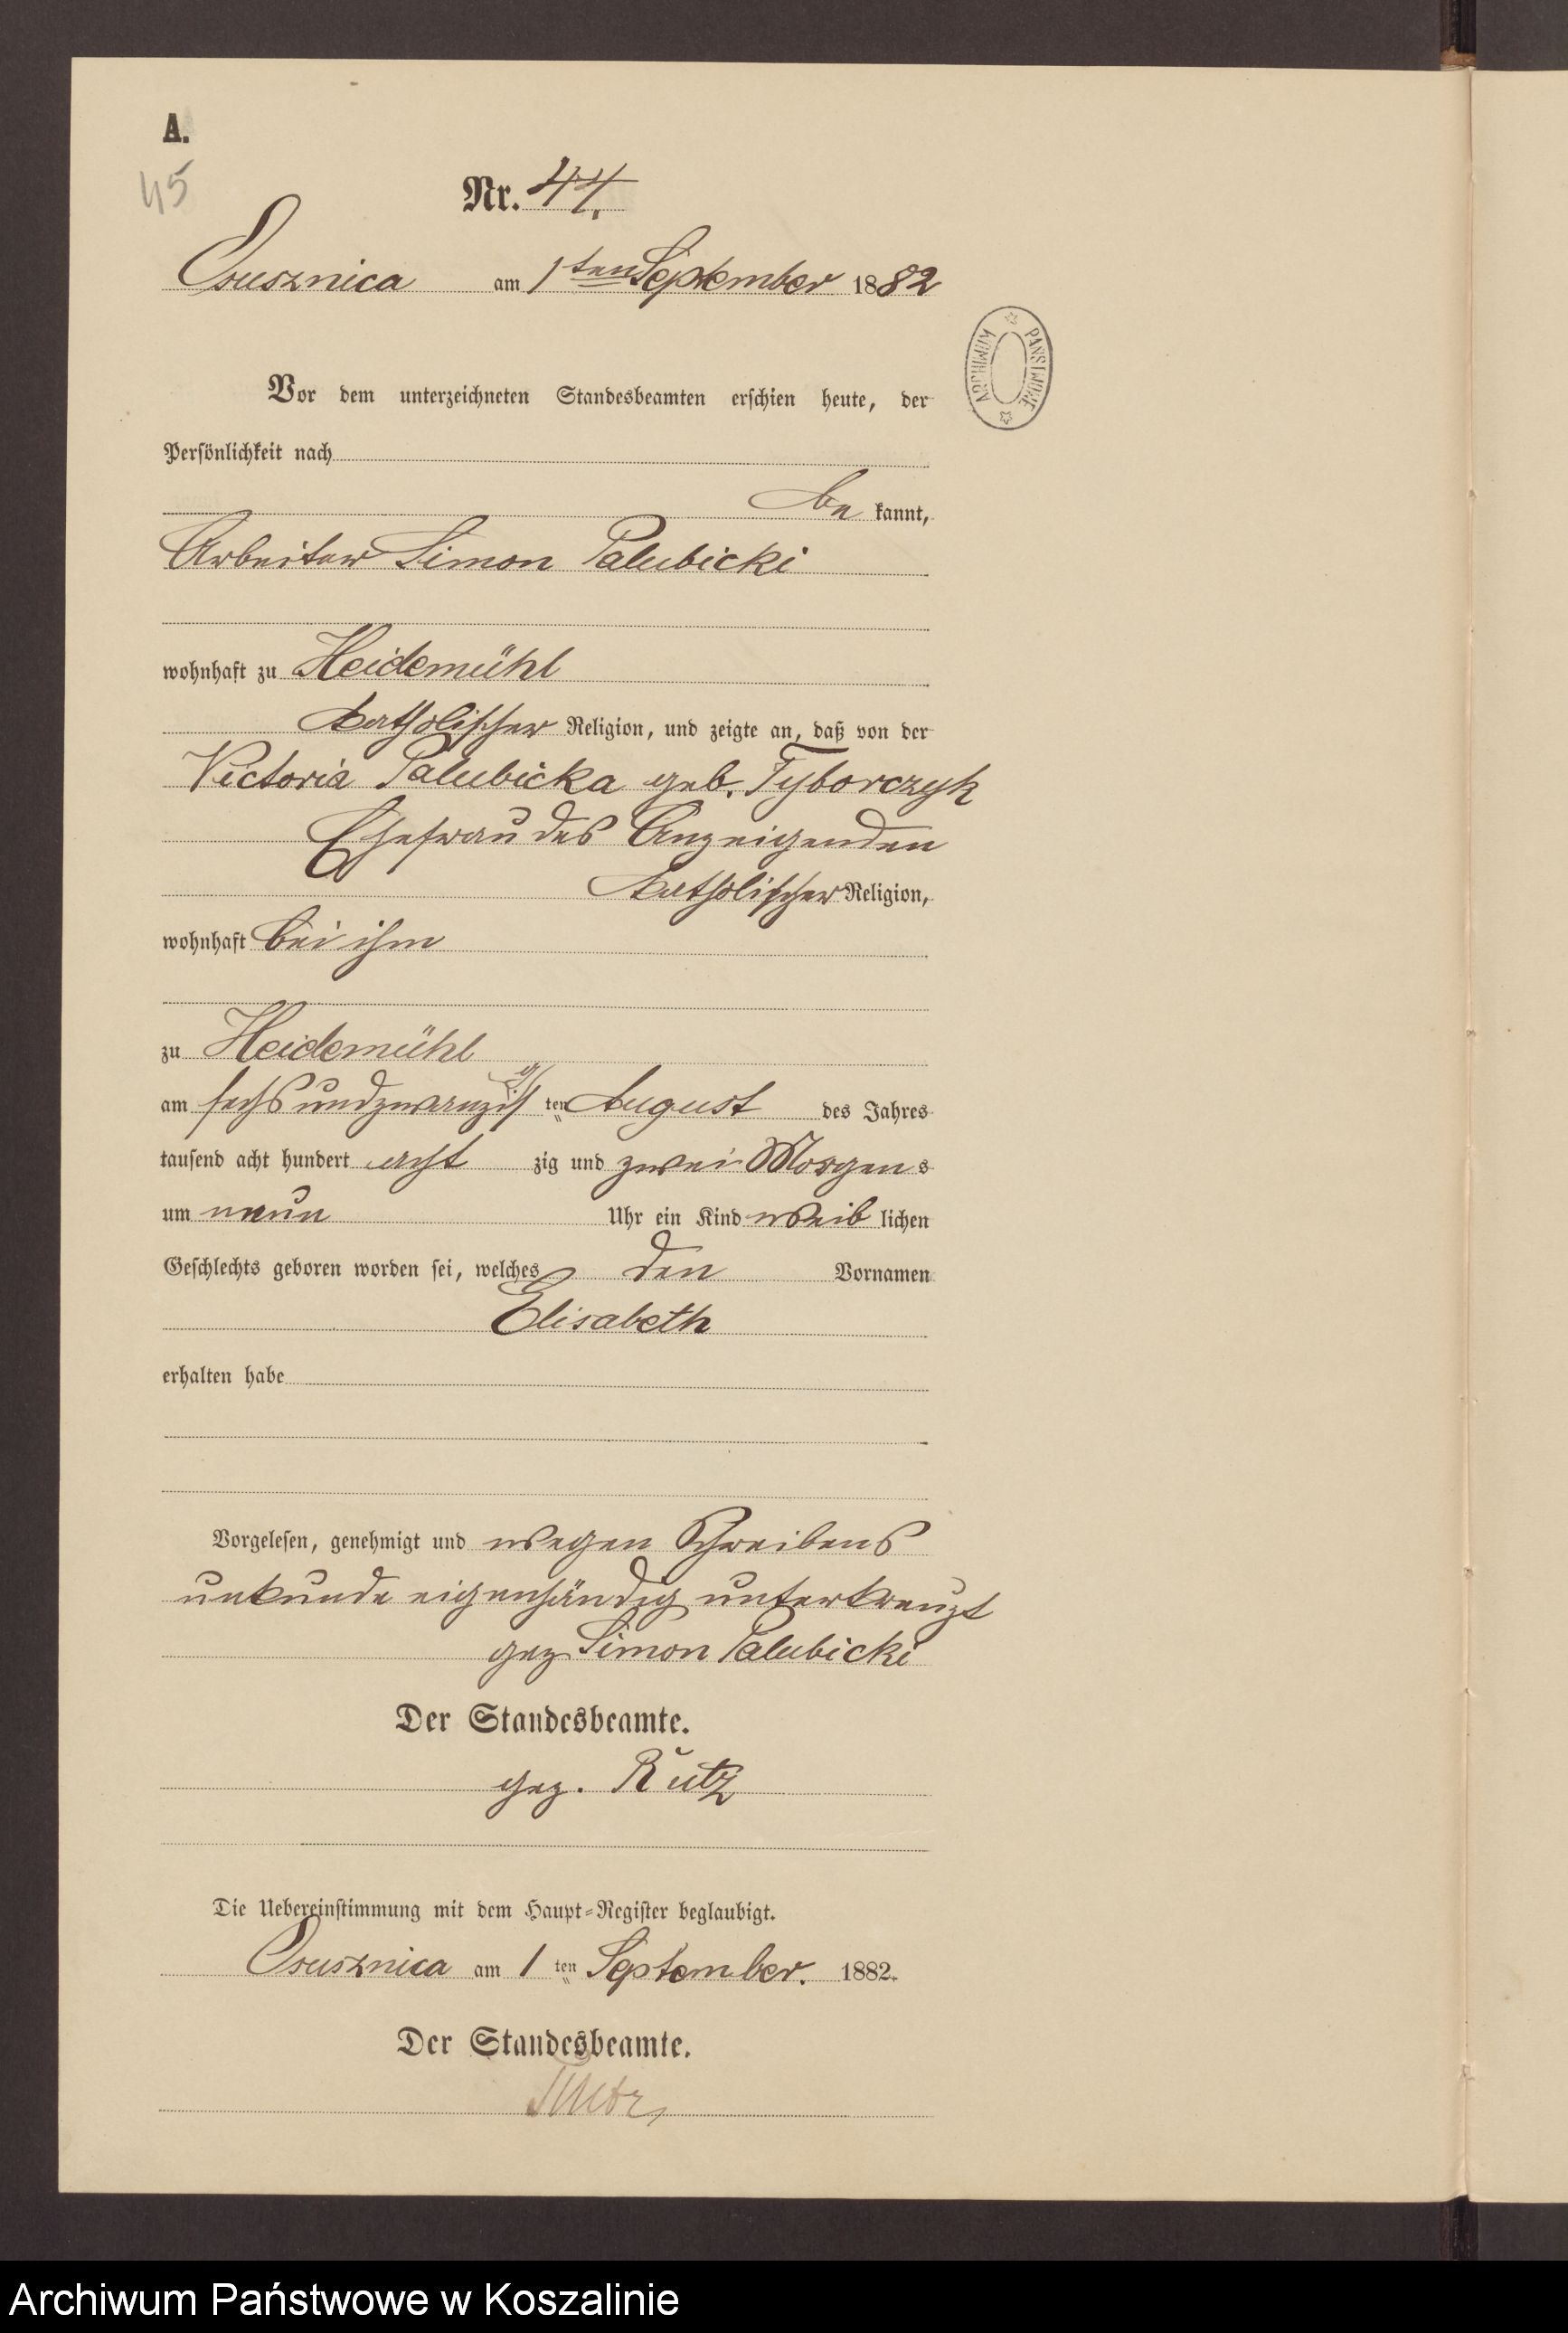 A.
45
Nr. 44.
Osusznica am 1ten September 1882
ARCHIWUM PAŃSTWOWE
Vor dem unterzeichneten Standesbeamten erschien heute, der
Persönlichkeit nach
be kannt,
Arbeiter Simon Palubicki
wohnhaft zu Heidemühl
katholischer Religion, und zeigte an, daß von der
Victoria Palubicka geb. Tyborczyk
Ehefrau des Anzeigenden
katholischer Religion,
wohnhaft bei ihm
zu Heidemühl
am sechsundzwanzig ten August des Jahres
tausend acht hundert acht zig und zwei Morgens
um neun Uhr ein Kind weib lichen
Geschlechts geboren worden sei, welches den Vornamen
Elisabeth
erhalten habe
Vorgelesen, genehmigt und wegen Schreibens
unkunde eigenhändig unterkreuzt
gez Simon Palubicki
Der Standesbeamte.
gez. Rutz
Die Uebereinstimmung mit dem Haupt-Register beglaubigt.
Osusznica am 1 ten September. 1882.
Der Standesbeamte.
Rutz
Archiwum Państwowe w Koszalinie